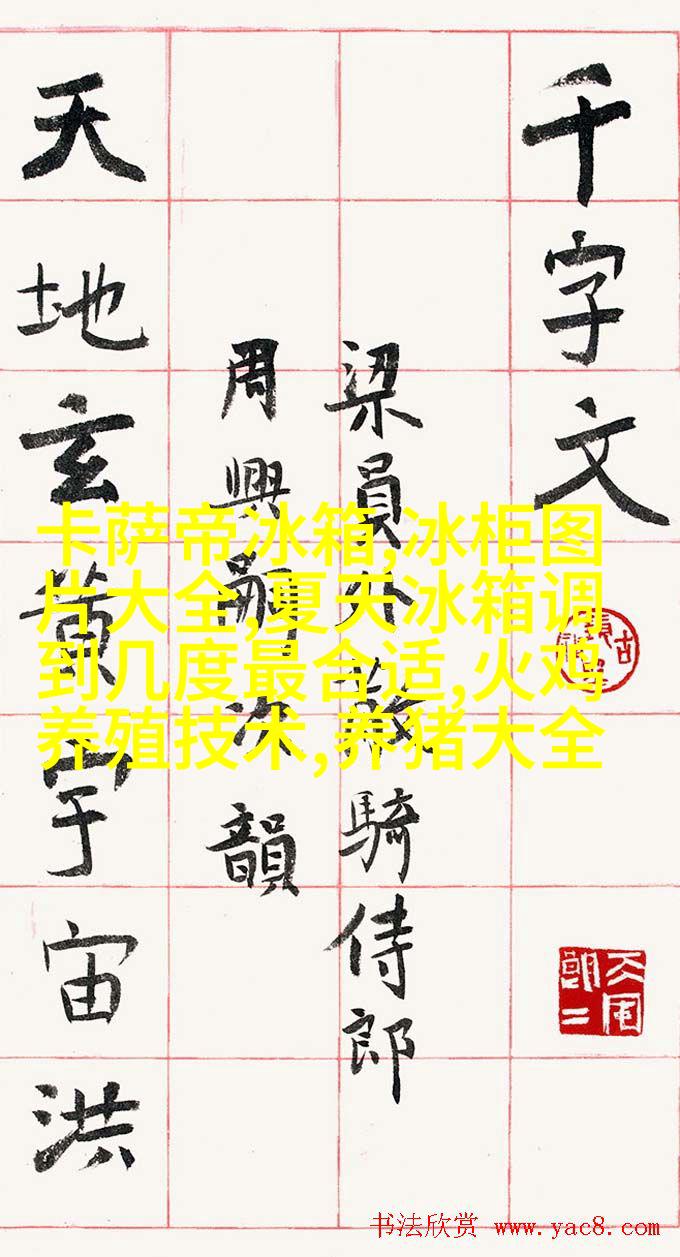 千字文
梁員外散騎侍郎
周興嗣次韻
天地玄黄宇宙洪
卡萨帝冰箱,冰柜图
片大全,夏天冰箱调
到几度最合适,火鸡
养殖技术,养猪大全
书法欣赏 www.yac8.com